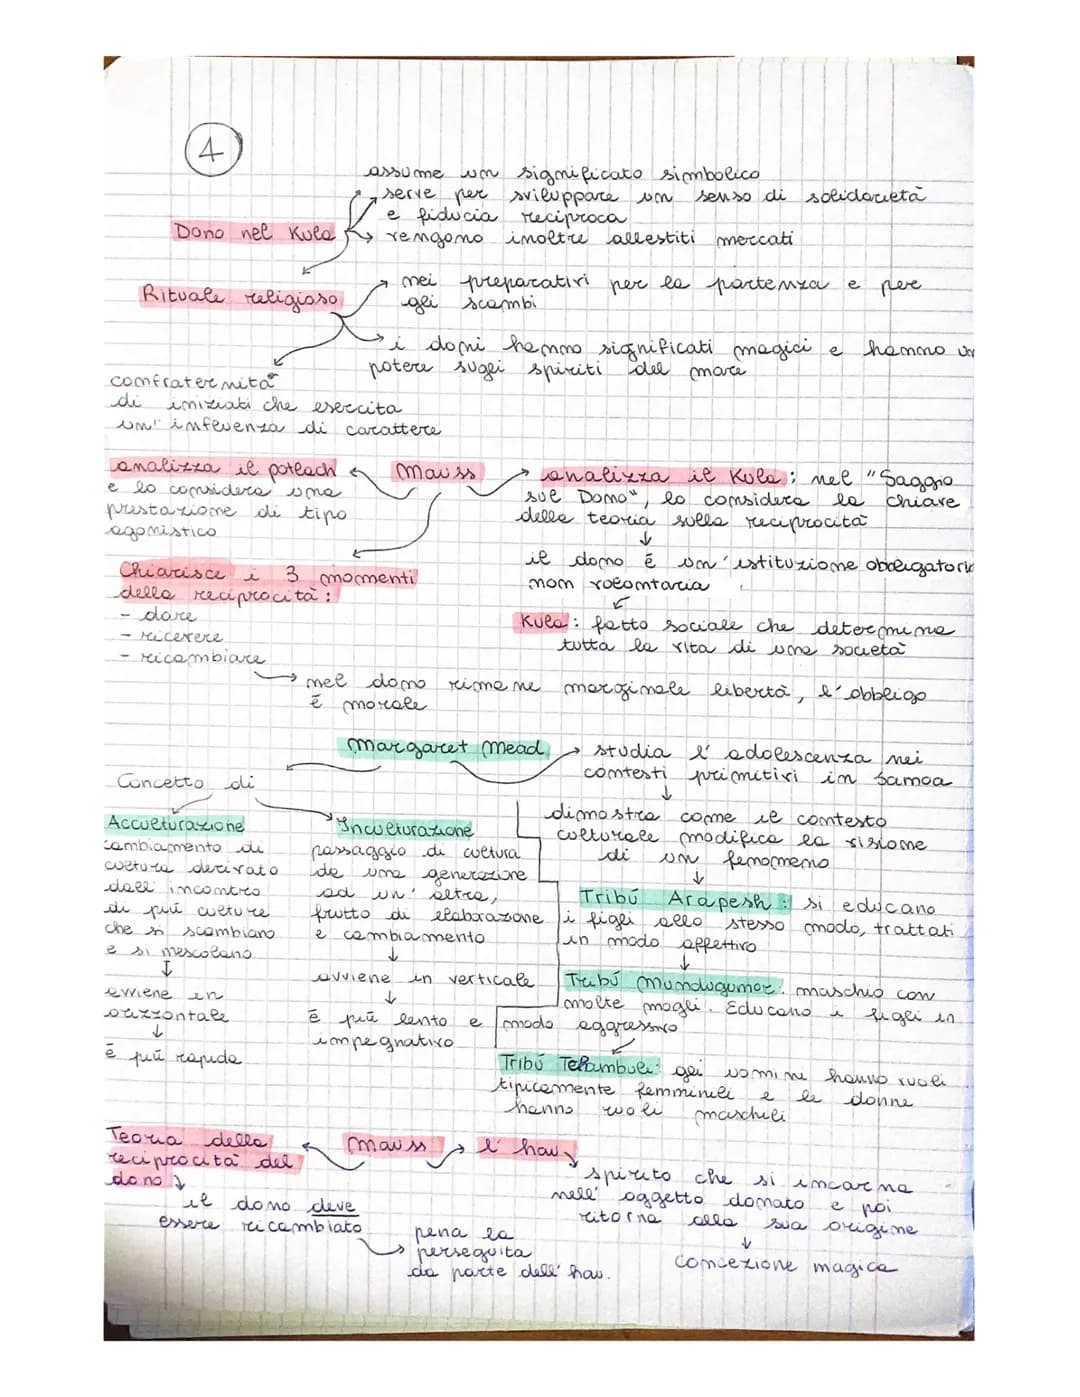 4
assume un significato simbolico
serve per sviluppare un senso di solidarietà
e fiducia reciproca
Dono nel Kula
vengono inoltre allestiti mercati
Rituale religioso
nei preparativi per la partenza e per
gli scambi
i doni hanno significati magici e hanno un
potere sugli spiriti del mare
confraternita
di iniziati che esercita
un' influenza di carattere
analizza il potlach
e lo considera una
prestazione di tipo
agonistico
Mauss
analizza il Kula: nel "Saggio
sul Dono", lo considera la chiave
della teoria sulla reciprocità
il dono è un'istituzione obbligatoria
non volontaria
Kula: fatto sociale che determina
tutta la vita di una società
Chiarisce i 3 momenti
della reciprocità:
- dare
- ricevere
- ricambiare
nel dono rimane marginale libertà, l'obbligo
è morale
Margaret Mead
studia l'adolescenza nei
contesti primitivi in Samoa
dimostra come il contesto
culturale modifica la visione
di un fenomeno
Concetto di
Acculturazione
cambiamento di
cultura derivato
dall'incontro
di più culture
che si scambiano
e si mescolano
avviene in
orizzontale
è più rapida
Inculturazione
passaggio di cultura
da una generazione
ad un'altra,
frutto di elaborazione
e cambiamento
avviene in verticale
è più lento e
impegnativo
Tribú Arapesh: si educano
i figli allo stesso modo, trattati
in modo affettivo
Tribú Mundugumor: maschio con
molte mogli. Educano i figli in
modo aggressivo
Tribú Tchambuli: gli uomini hanno ruoli
tipicamente femminili e le donne
hanno ruoli maschili
Teoria della
reciprocità del
dono
il dono deve
essere ricambiato
pena la
perseguita
da parte dell'hau.
Mauss
l'hau
spirito che si incarna
nell'oggetto donato e poi
ritorna alla sua origine
concezione magica